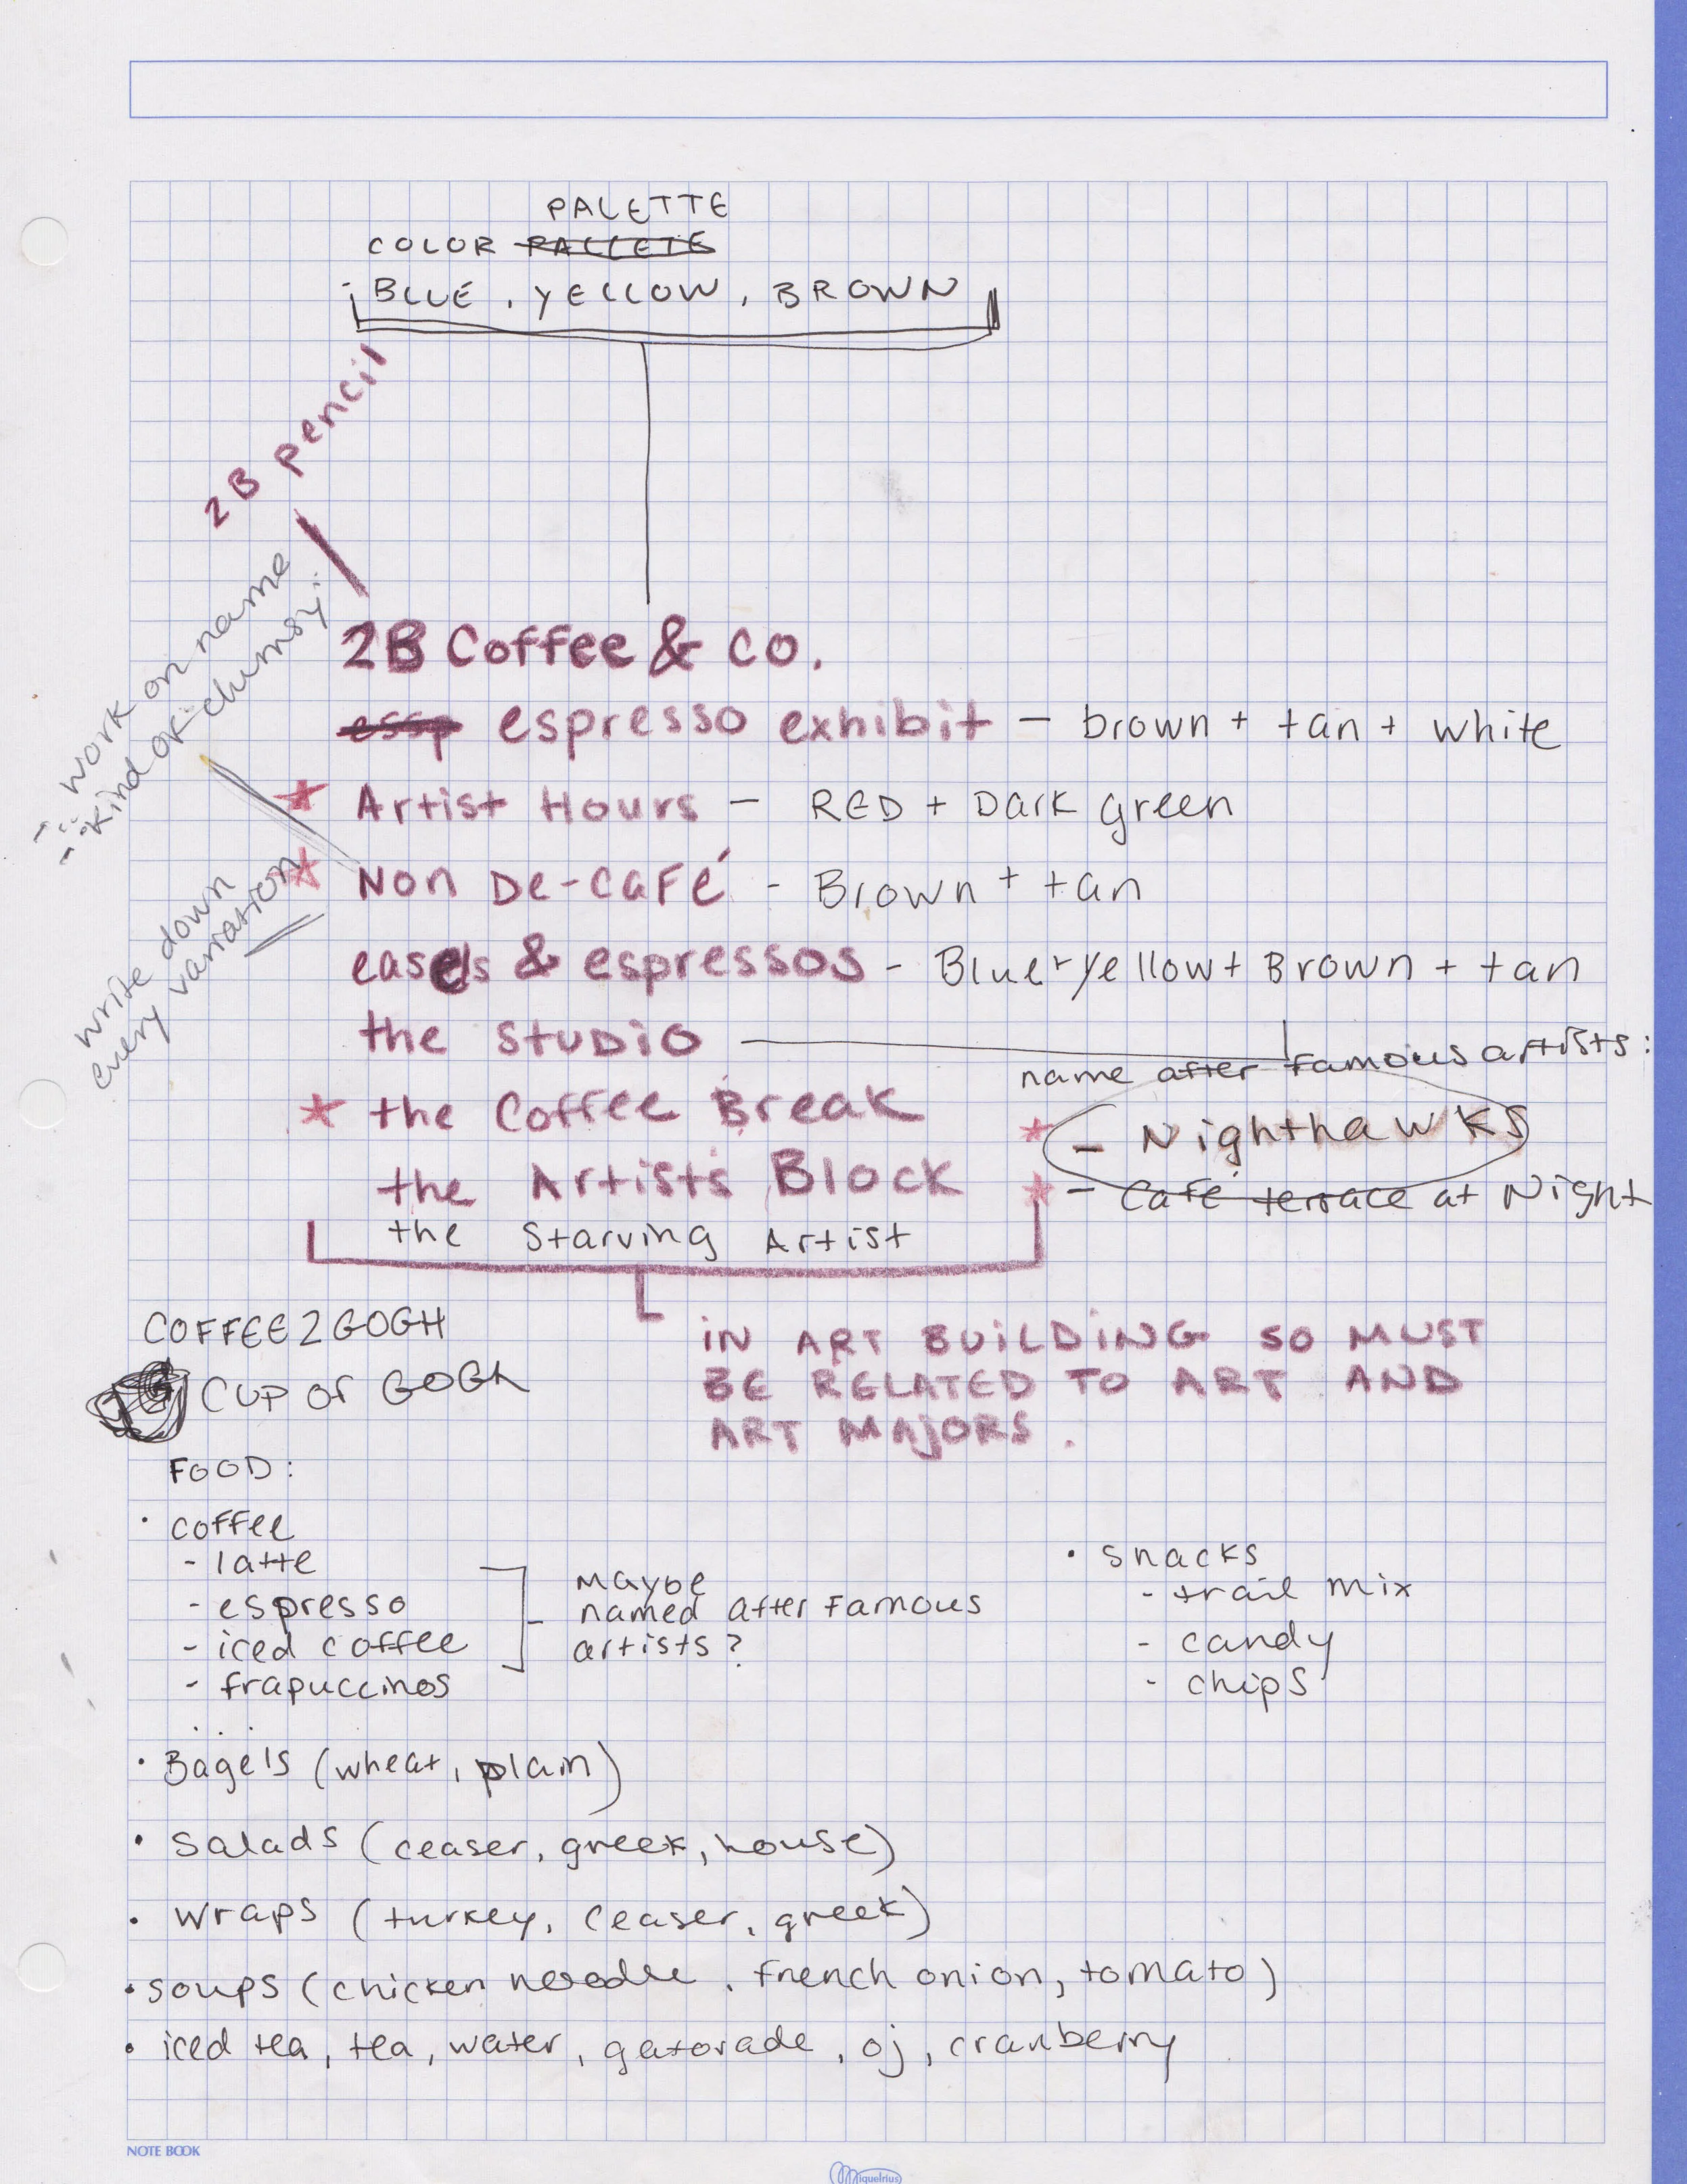 PALETTE
COLOR PALLETE
BLUE, YELLOW, BROWN
2B pencil
work on name
kind of clumsy
2B Coffee & co.
essp espresso exhibit - brown + tan + white
Artist Hours - RED + Dark green
Non De-Café - Brown + tan
write down
every variation
easels & espressos - Blue + yellow + Brown + tan
the STUDiO
name after famous artists:
the Coffee Break
- Nighthawks
the Artists Block
- Café terrace at Night
the Starving Artist
COFFEE2GOGH
CUP OF GOGH
iN ART BUiLDiNG SO MUST
BE RELATED TO ART AND
ART MAJORS.
FOOD:
• coffee
- latte
- espresso
- iced coffee
- frapuccinos
Maybe
named after Famous
artists?
• snacks
- trail mix
- candy
- chips
• Bagels (wheat, plain)
• Salads (ceaser, greek, house)
• wraps (turkey, ceaser, greek)
• soups (chicken noodle, french onion, tomato)
• iced tea, tea, water, gatorade, oj, cranberry
NOTE BOOK
Miquelrius